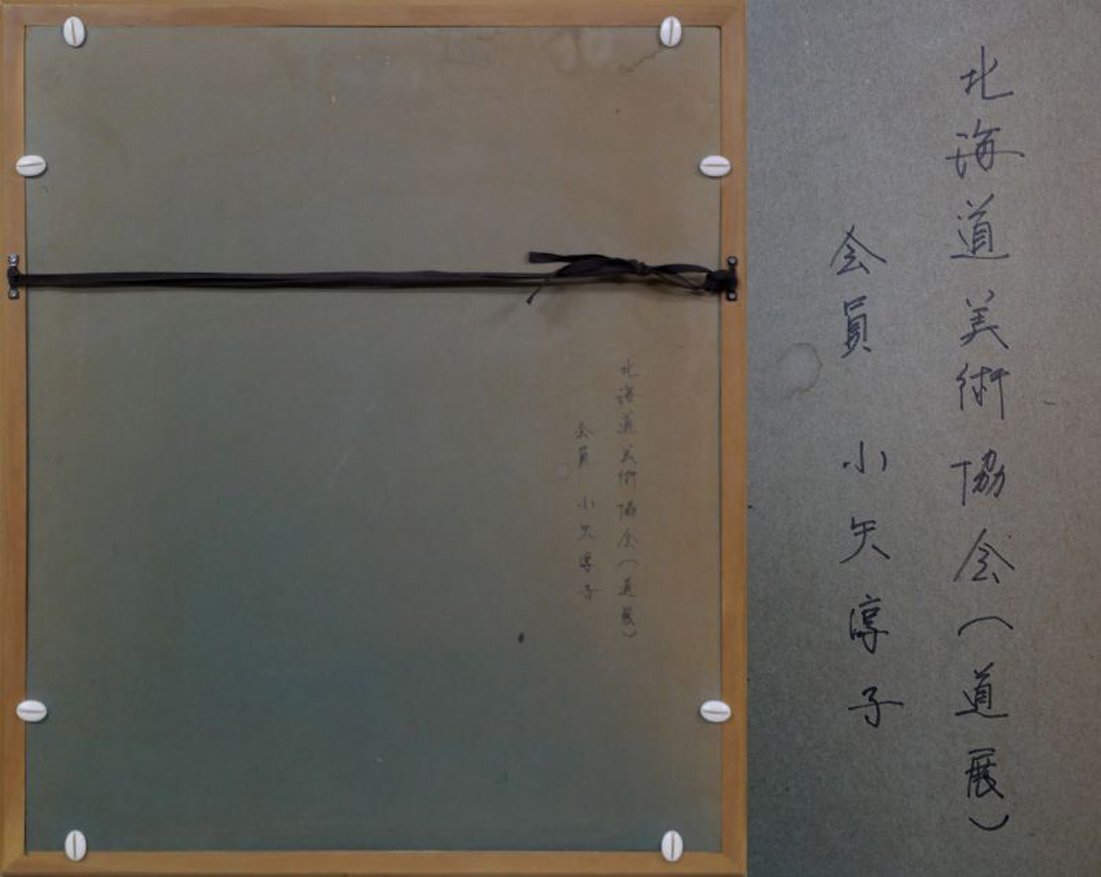 北海道美術協会(道展)
会員 小矢淳子
北海道美術協会(道展)
会員 小矢淳子